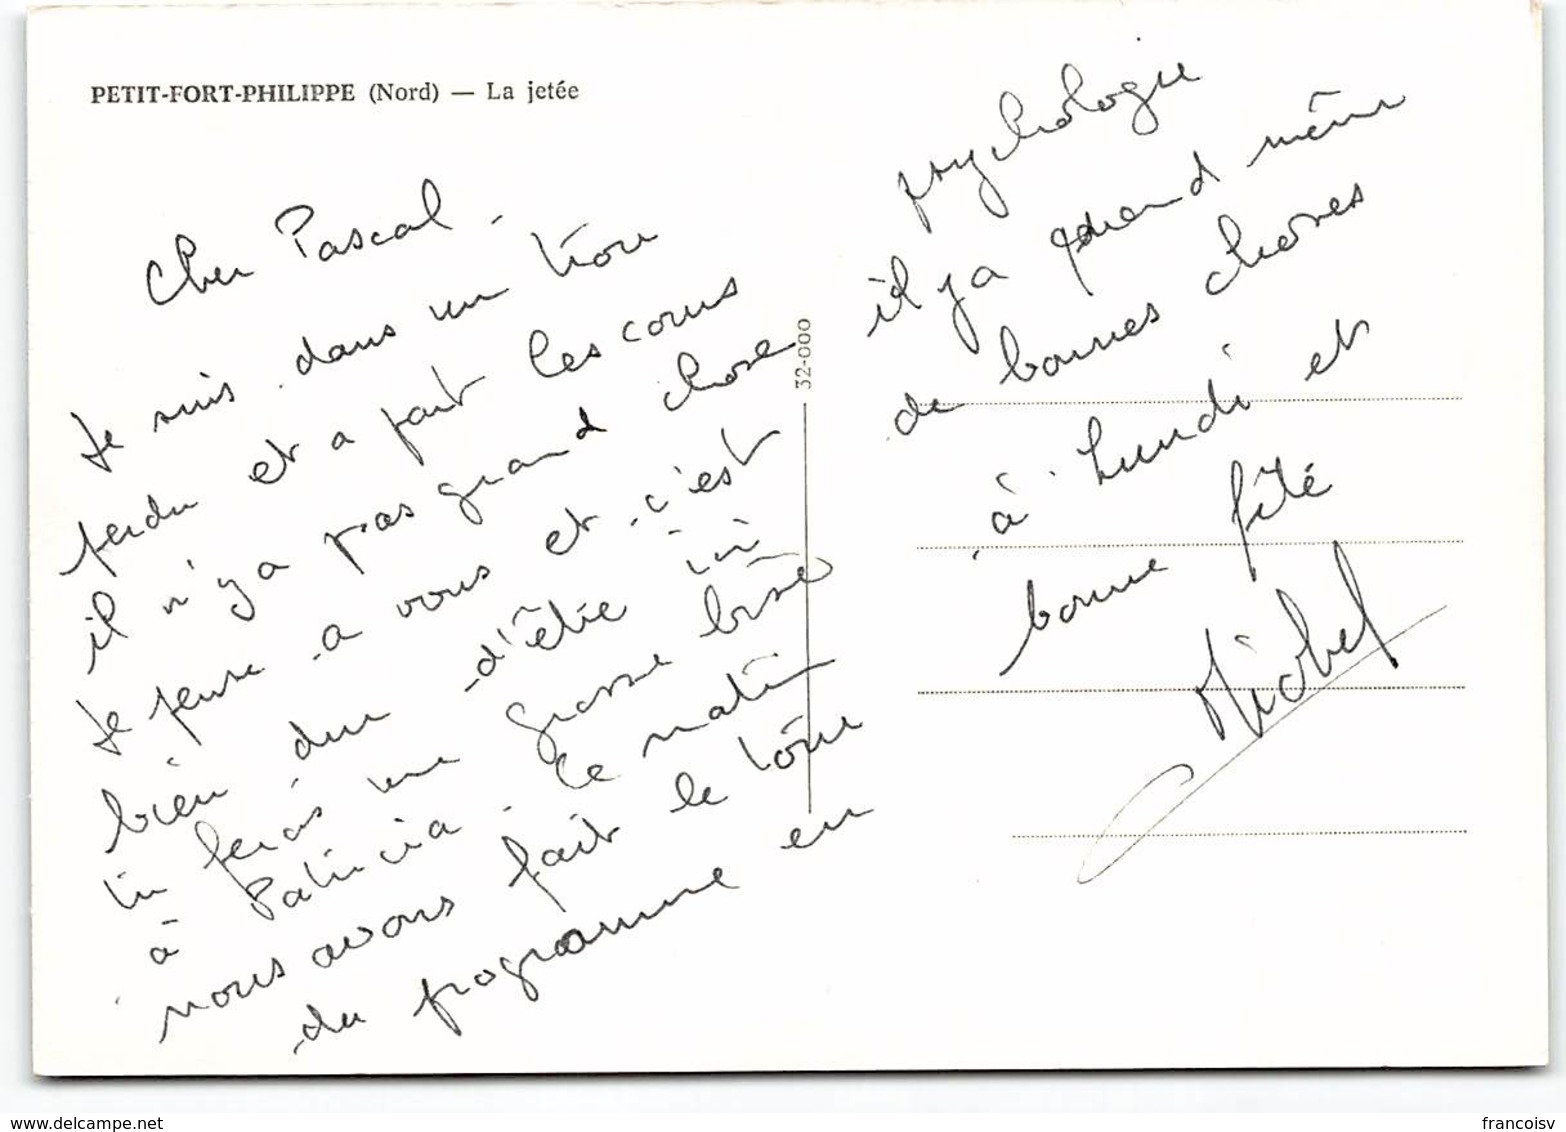 PETIT-FORT-PHILIPPE (Nord) — La jetée
Cher Pascal.
Je suis dans un trou
perdu et a part les cours
il n'y a pas grand chose
Je pense a vous et c'est
bien dur d'être ici
tu feras une grosse bise
à Patricia. Ce matin
nous avons fait le tour
du programme en
psychologie
il y a quand même
de bonnes choses
à Lundi et
bonne fête
Michel
32-000
www.delcampe.net
francoisv